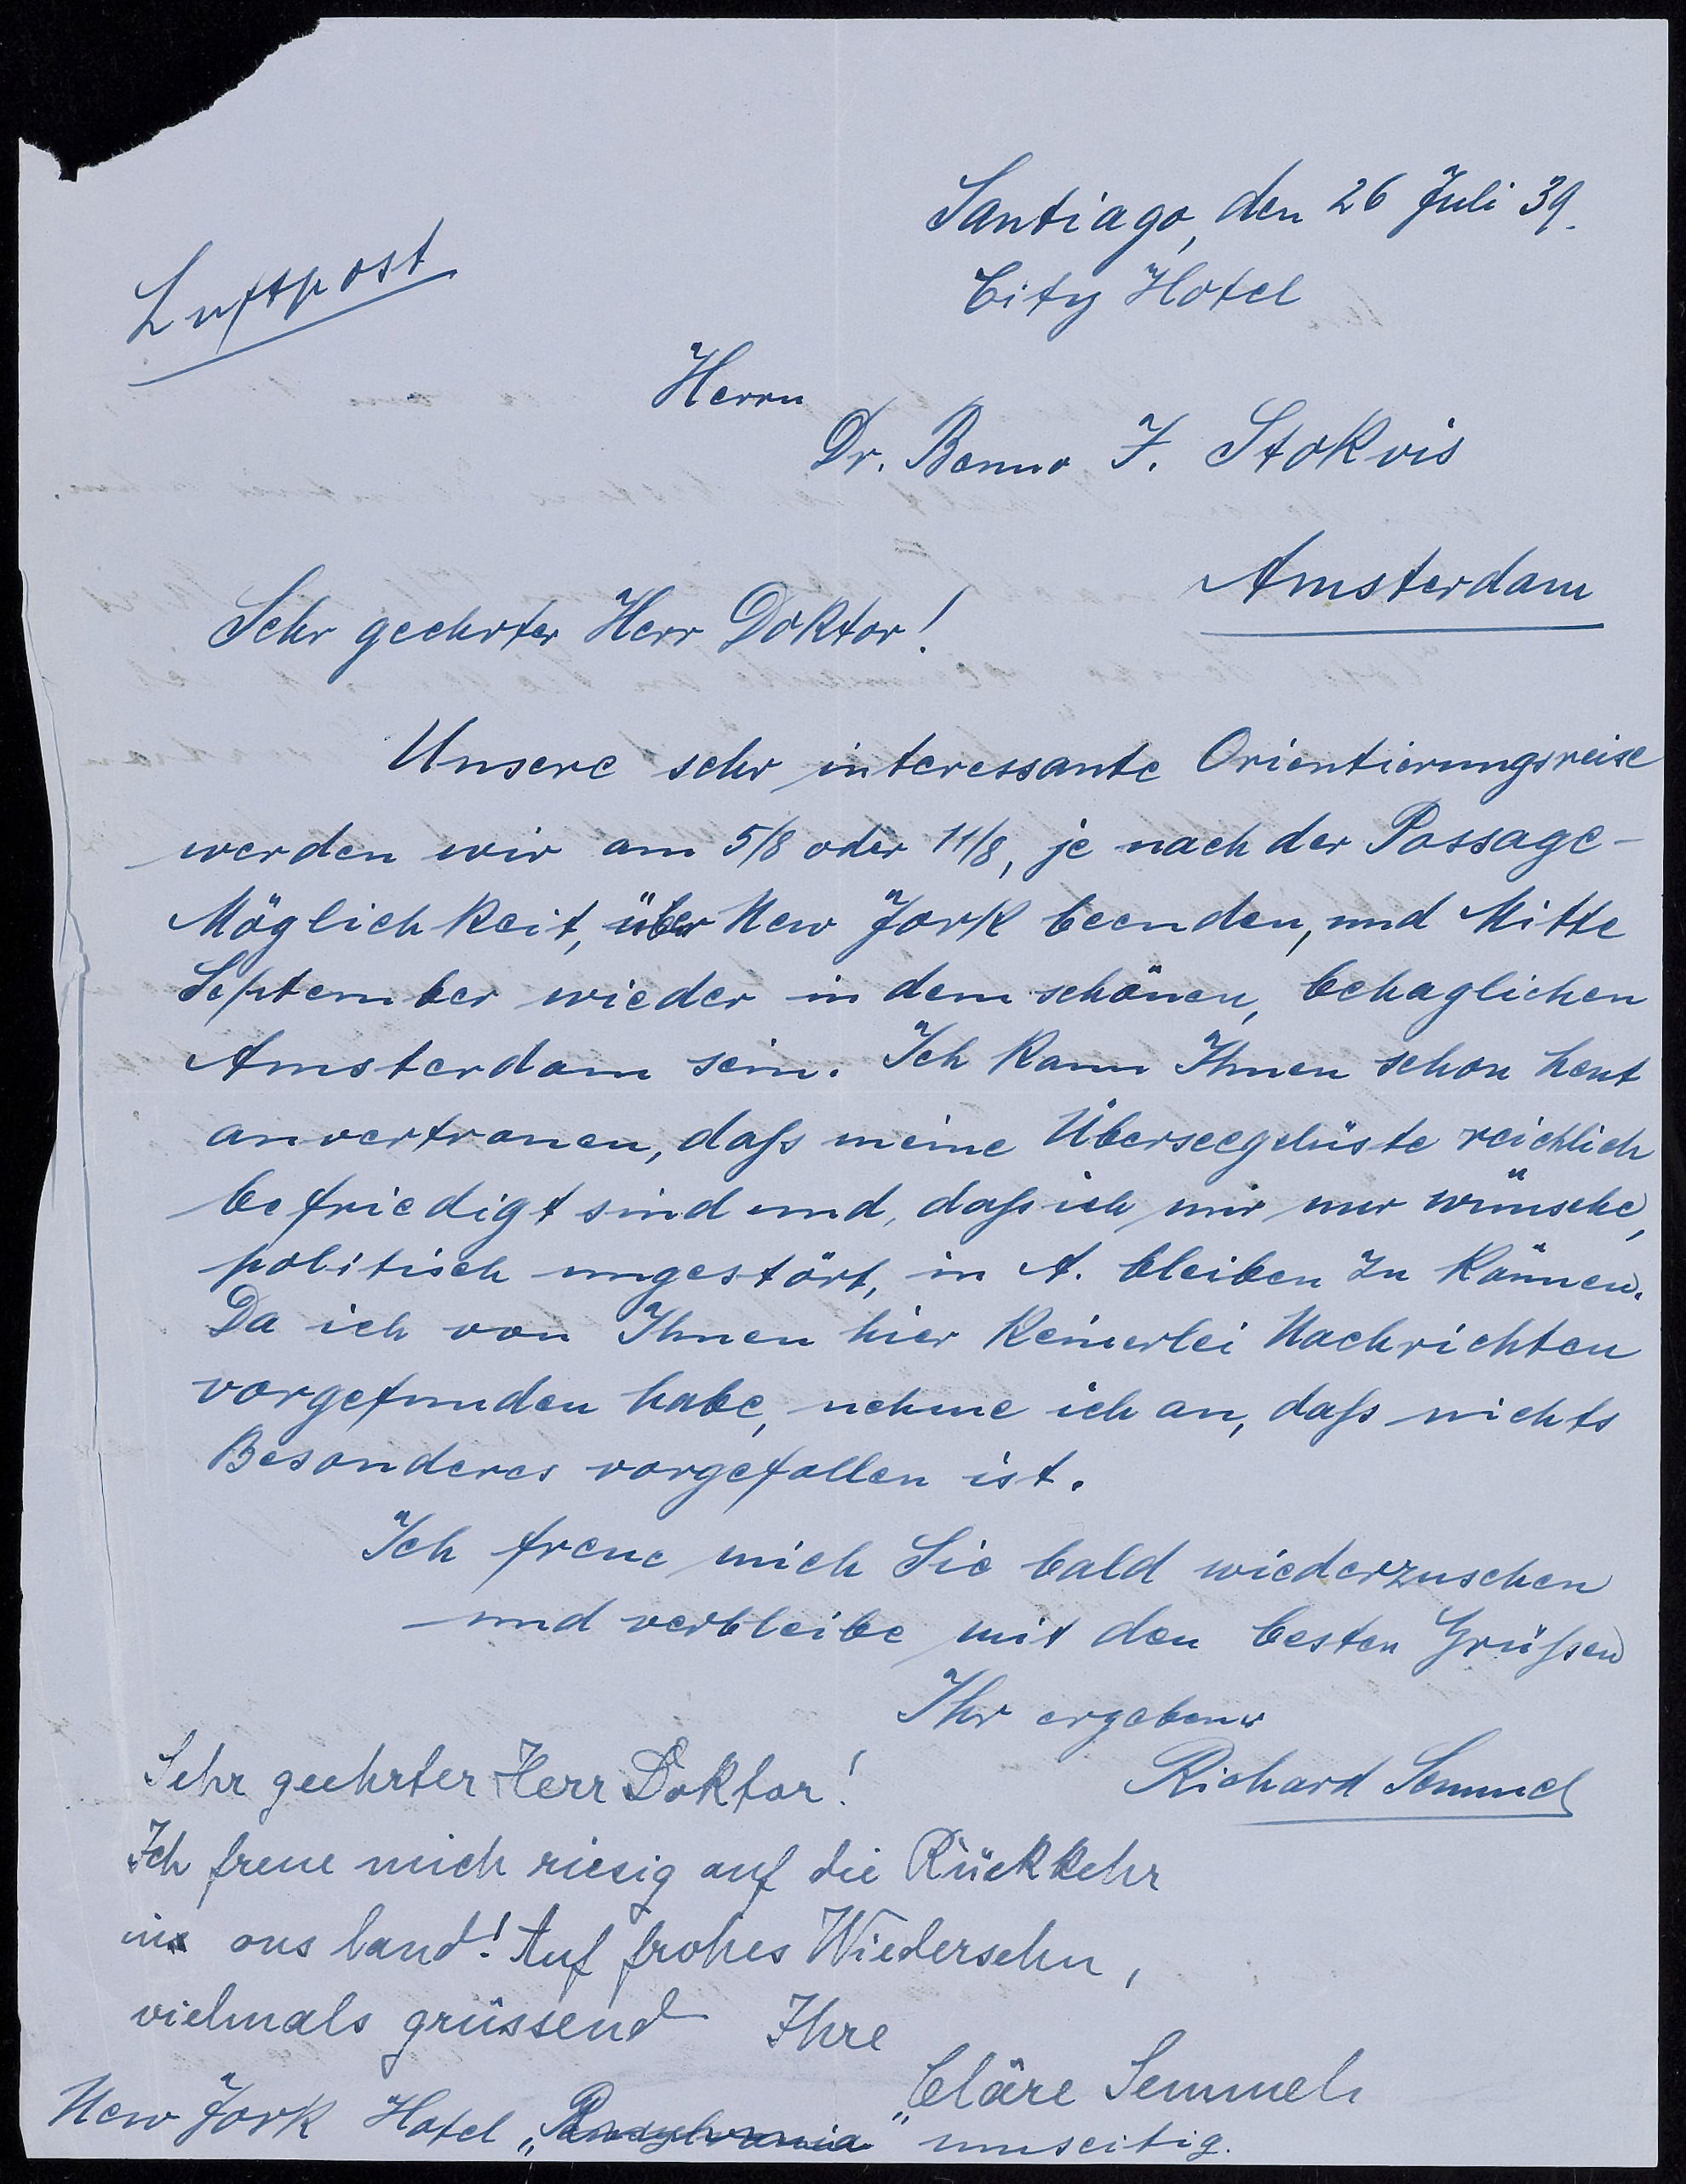 Santiago, den 26 Juli 39.
City Hotel
Luftpost
Herrn
Dr. Benno J. Stokvis
Amsterdam
Sehr geehrter Herr Doktor!
Unsere sehr interessante Orientierungsreise
werden wir am 5/8 oder 11/8, je nach der Passage-
Möglichkeit, über New York beenden, und Mitte
September wieder in dem schönen, behaglichen
Amsterdam sein. Ich kann Ihnen schon heut
anvertrauen, daß meine Überseegelüste reichlich
befriedigt sind und, daß ich mir nur wünsche,
politisch ungestört, in A. bleiben zu können.
Da ich von Ihnen hier keinerlei Nachrichten
vorgefunden habe, nehme ich an, daß nichts
Besonderes vorgefallen ist.
Ich freue mich Sie bald wiederzusehen
und verbleibe mit den besten Grüßen
Ihr ergebener
Richard Semmel
Sehr geehrter Herr Doktor!
Ich freue mich riesig auf die Rückkehr
in ons land! Auf frohes Wiedersehn,
vielmals grüssend Ihre
Cläre Semmel
New York Hotel „Pensylvania" umseitig.